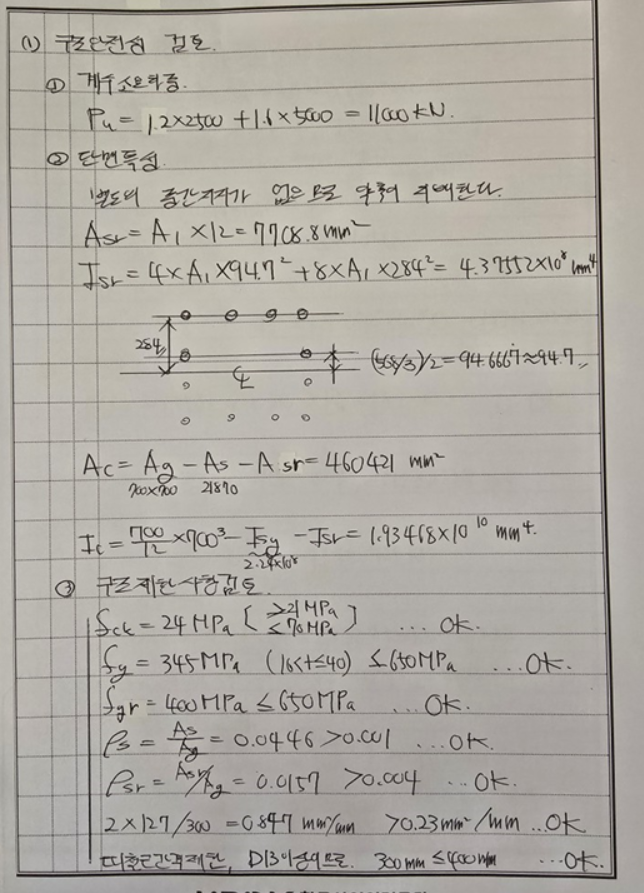 (1) 구조안전성 검토.
① 계수소요하중.
Pu = 1.2×2500 + 1.6×5000 = 11000 kN.
② 단면특성.
별도의 중간지지가 없으므로 약축이 지배한다.
Asr = A₁ ×12 = 7708.8 mm²
Isr = 4×A₁×94.7² + 8×A₁×284² = 4.37552×10⁸ mm⁴
284
(568/3)/2 = 94.6667 ≈ 94.7
C̲L
Ac = Ag - As - Asr = 460421 mm²
700×700 21870
Ic = 700/12 ×700³ - Isy - Isr = 1.93468×10¹⁰ mm⁴.
2.24×10⁸
③ 구조제한사항검토.
fck = 24 MPa [ ≥21 MPa ≤70 MPa ] ... OK.
fy = 345 MPa (16<t≤40) ≤650 MPa ... OK.
fyr = 400 MPa ≤ 650 MPa ... OK.
ρs = As/Ag = 0.0446 > 0.001 ... OK.
ρsr = Asr/Ag = 0.0157 > 0.004 ... OK.
2×127/300 = 0.847 mm²/mm > 0.23 mm²/mm ... OK
띠철근간격제한, D13이상이므로. 300 mm ≤ 400 mm ... OK.